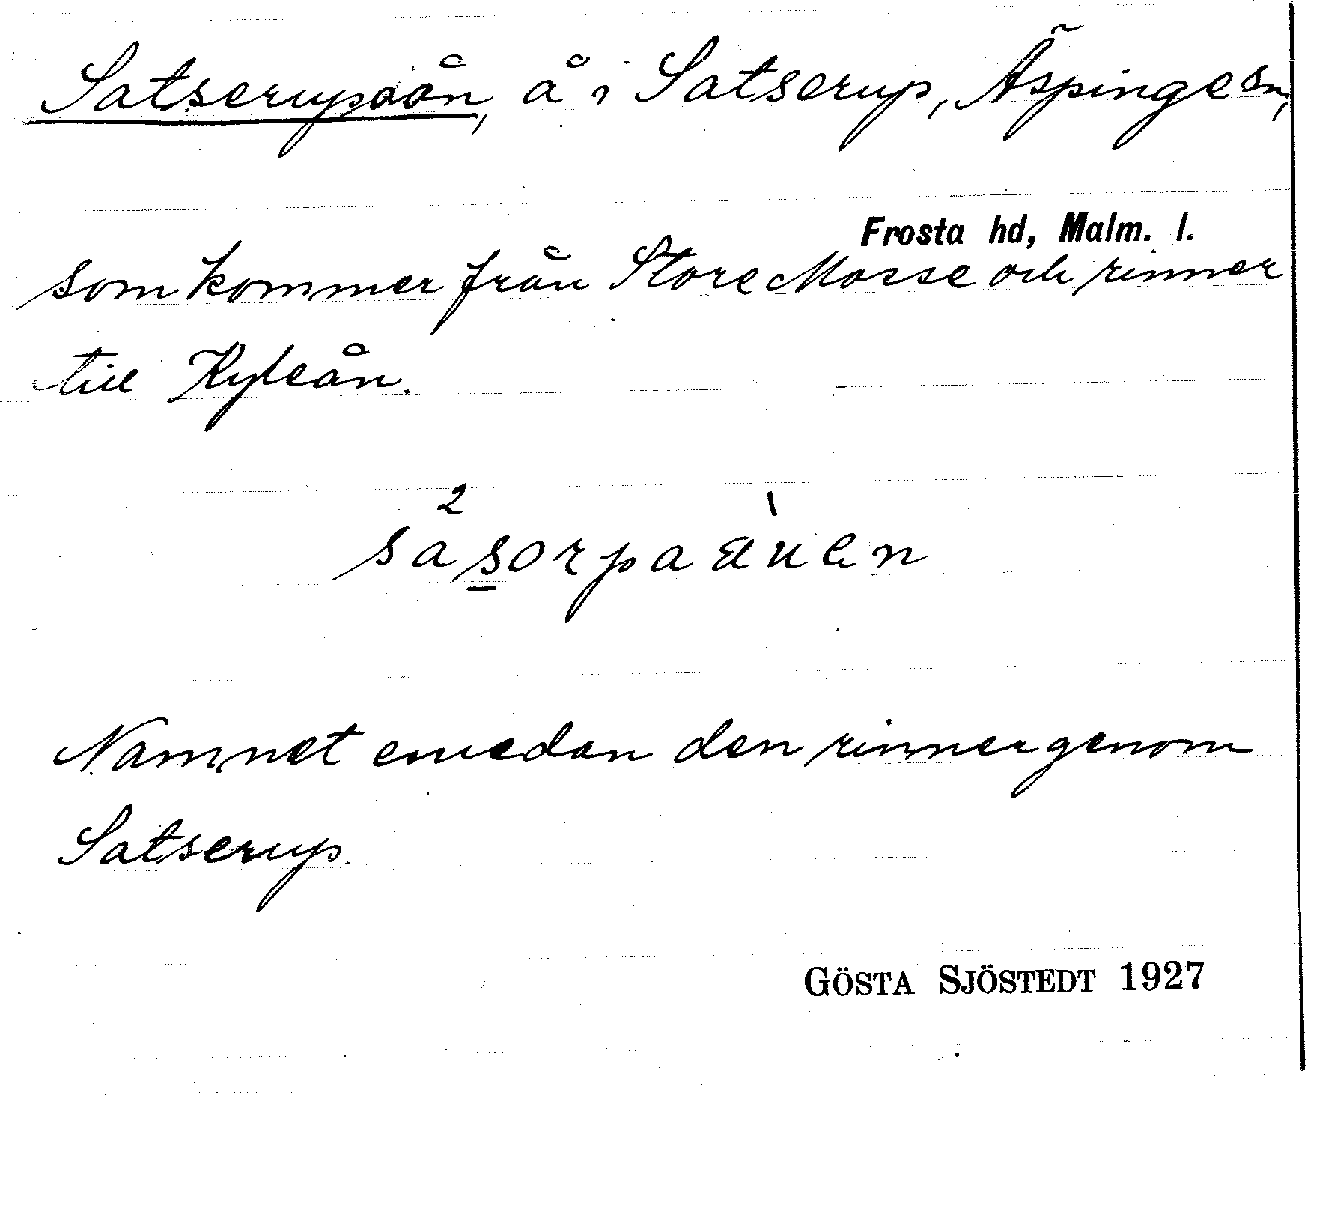 Satserupaån, å i Satserup, Äspinge sn,
Frosta hd, Malm. l.
som kommer från Store Mosse och rinner
till Kyleån.
Namnet emedan den rinner genom
Satserup.
GÖSTA SJÖSTEDT 1927